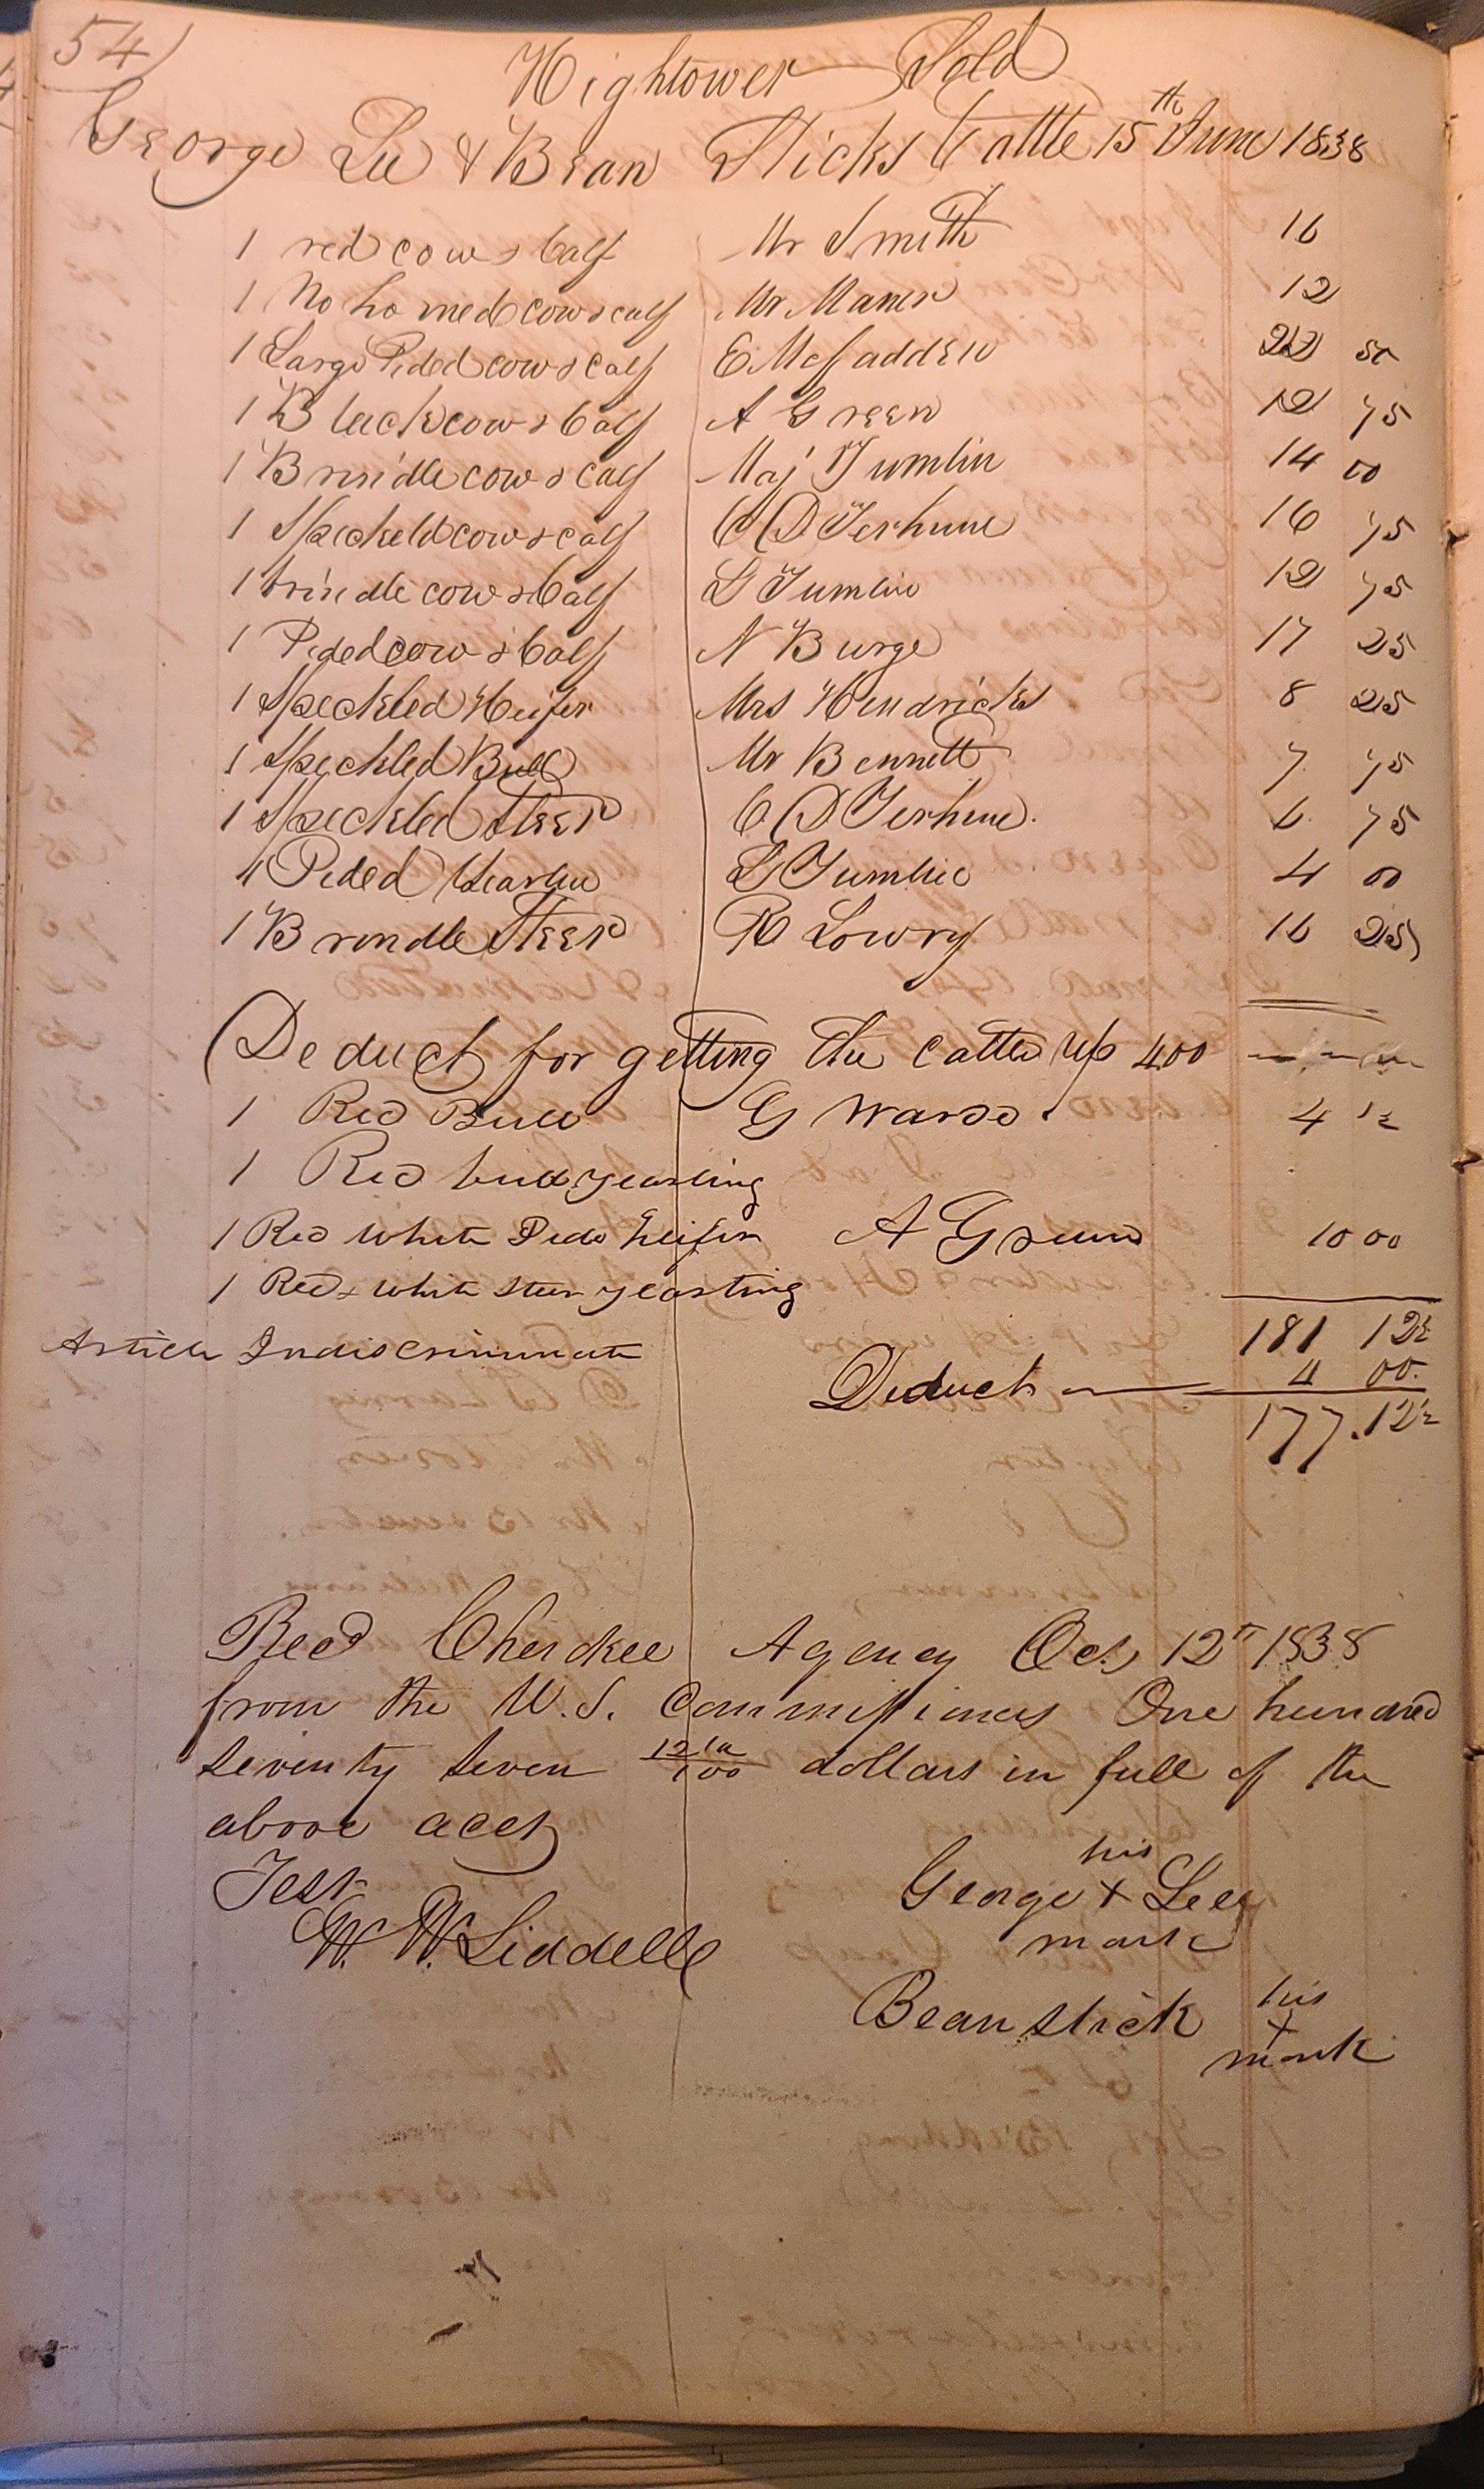 54
Hightower Sold
George Lee & Bean Sticks Cattle 15th June 1838
1 red cow & Calf Mr Smith 16
1 No horned cow & calf Mr Maner 12
1 Large Pided cow & Calf E McFadden 22 50
1 Black cow & Calf A Green 12 75
1 Brindle cow & Calf Maj Tumlin 14 00
1 Speckeld cow & calf C D Terhune 16 75
1 brindle cow & Calf L Tumlin 12 75
1 Pided cow & Calf N Burge 17 25
1 Speckled Heifer Mrs Hendricks 8 25
1 Speckled Bull Mr Bennett 7 75
1 Speckled Steer C D Terhune. 6 75
1 Pided Yearlin L Tumlin 4 00
1 Brindle Steer R Lowry 16 25
Deduct for getting the cattle up 4.00
1 Red Bull G Ward 4 12
1 Red bull yearling
1 Red White Pide heifer A Green 10 00
1 Red & White Steer yearling
Article Indiscriminate 181 12½
Deduct 4 00.
177.12½
Recd Cherokee Agency Oct 12th 1838
from the U.S. Commissioners One hundred
seventy seven 12½/100 dollars in full of the
above acct
Test his
George + Lee
W. W. Liddell mark
Bean stick his
+
mark